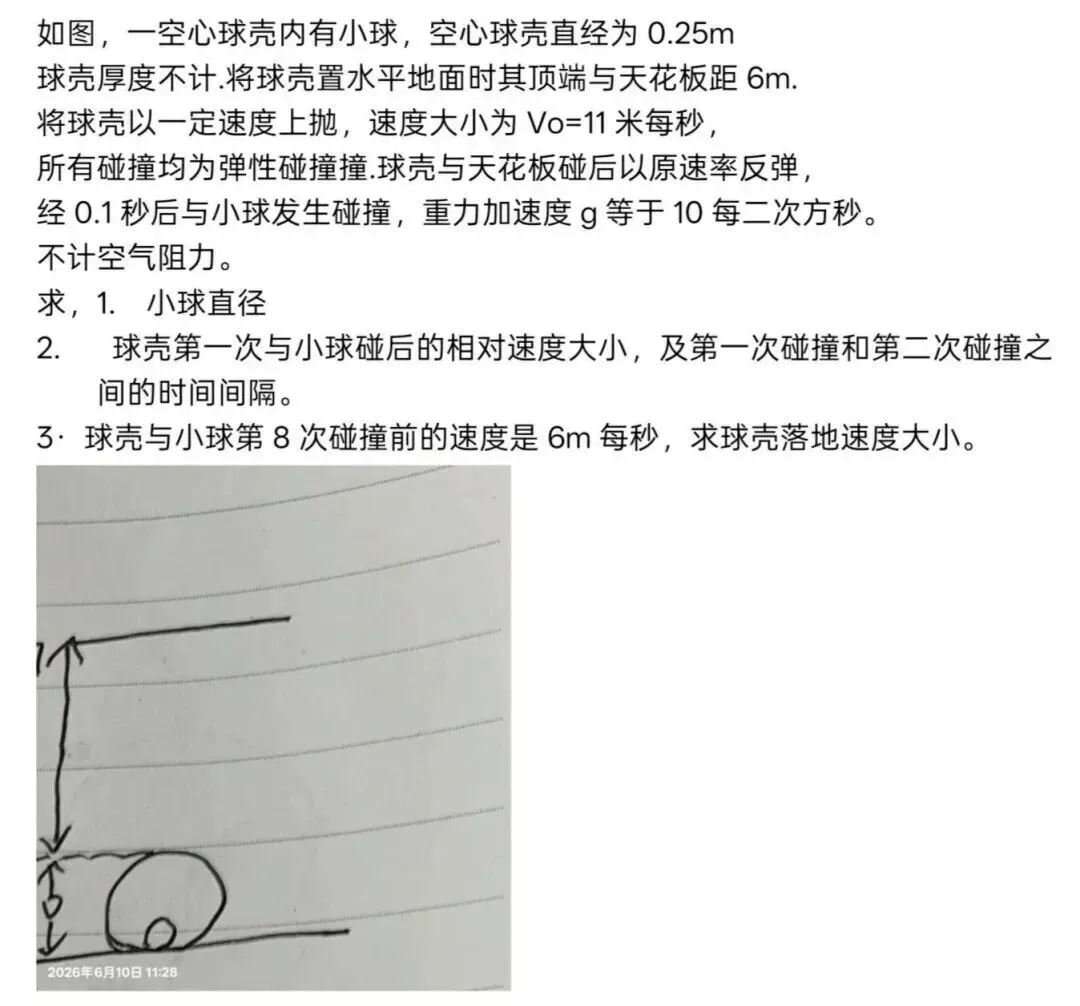 如图，一空心球壳内有小球，空心球壳直经为 0.25m
球壳厚度不计.将球壳置水平地面时其顶端与天花板距 6m.
将球壳以一定速度上抛，速度大小为 Vo=11 米每秒，
所有碰撞均为弹性碰撞撞.球壳与天花板碰后以原速率反弹，
经 0.1 秒后与小球发生碰撞，重力加速度 g 等于 10 每二次方秒。
不计空气阻力。
求，1. 小球直径
2. 球壳第一次与小球碰后的相对速度大小，及第一次碰撞和第二次碰撞之
间的时间间隔。
3· 球壳与小球第 8 次碰撞前的速度是 6m 每秒，求球壳落地速度大小。
2026年6月10日 11:28